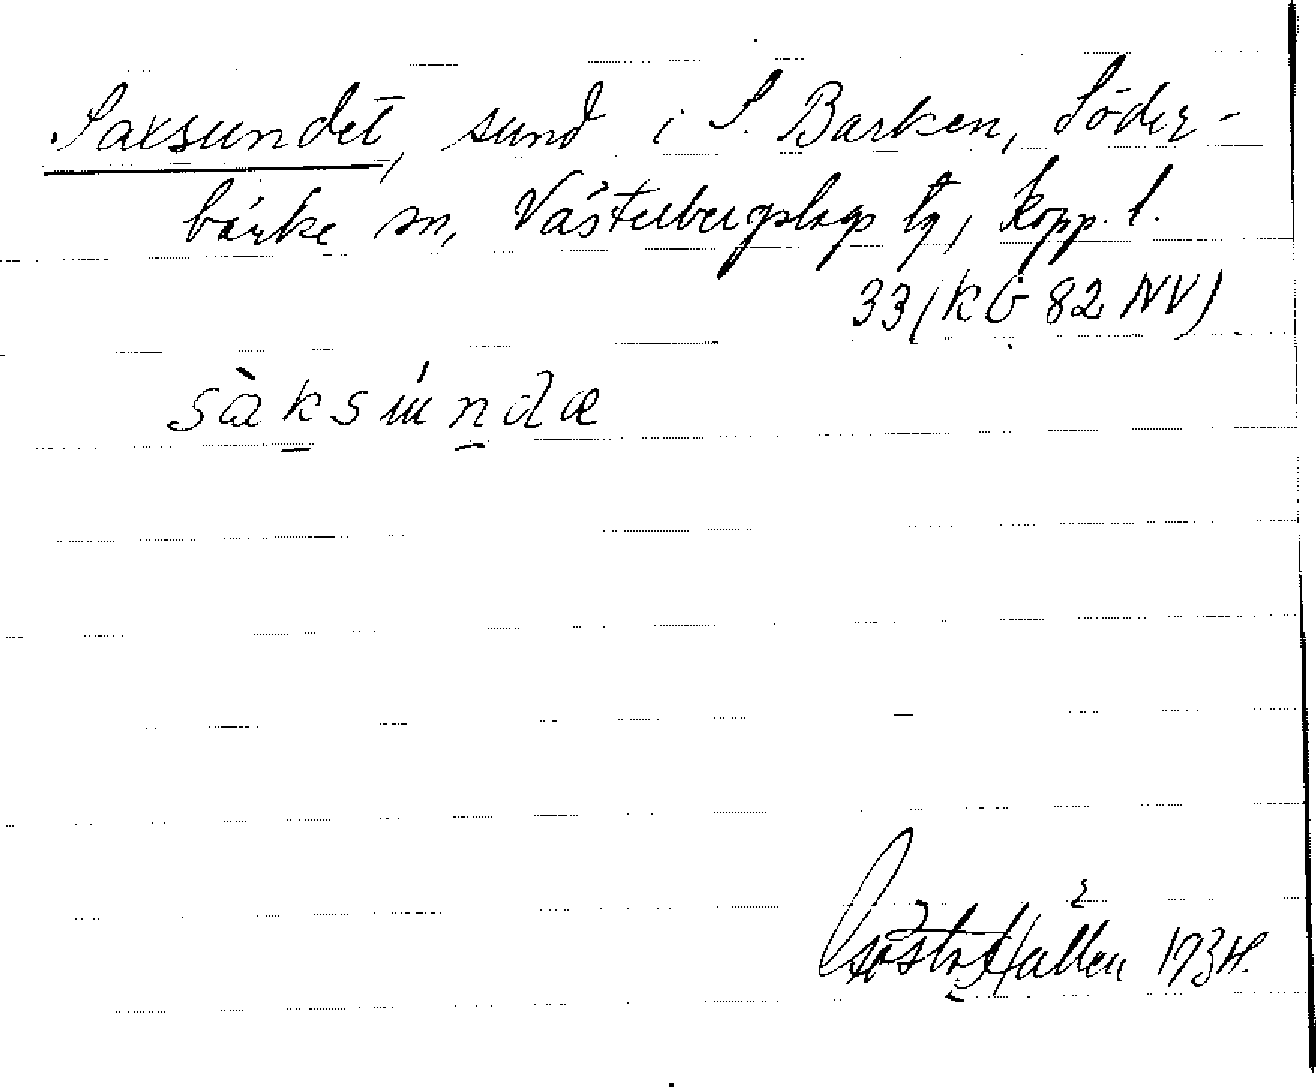 Saxsundet, sund i S. Barken, Söder-
bärke sn, Västerbergslags tg, Kopp. l.
33 (KG 82 NV)
sàksúndæ
Gösta Hallen 1934.